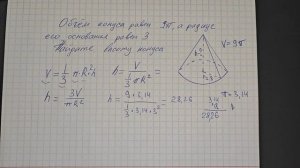 Объём конуса равен 9π, а радиус
его основания равен 3
Найдите высоту конуса
V = 1/3 π·R²·h
h = V / (1/3 π R²) =
V = 9π
h = 3V / πR²
h = 9 * 3,14 / (1/3 * 3,14 * 3²) = 28,26
π = 3,14
3,14
9
2826